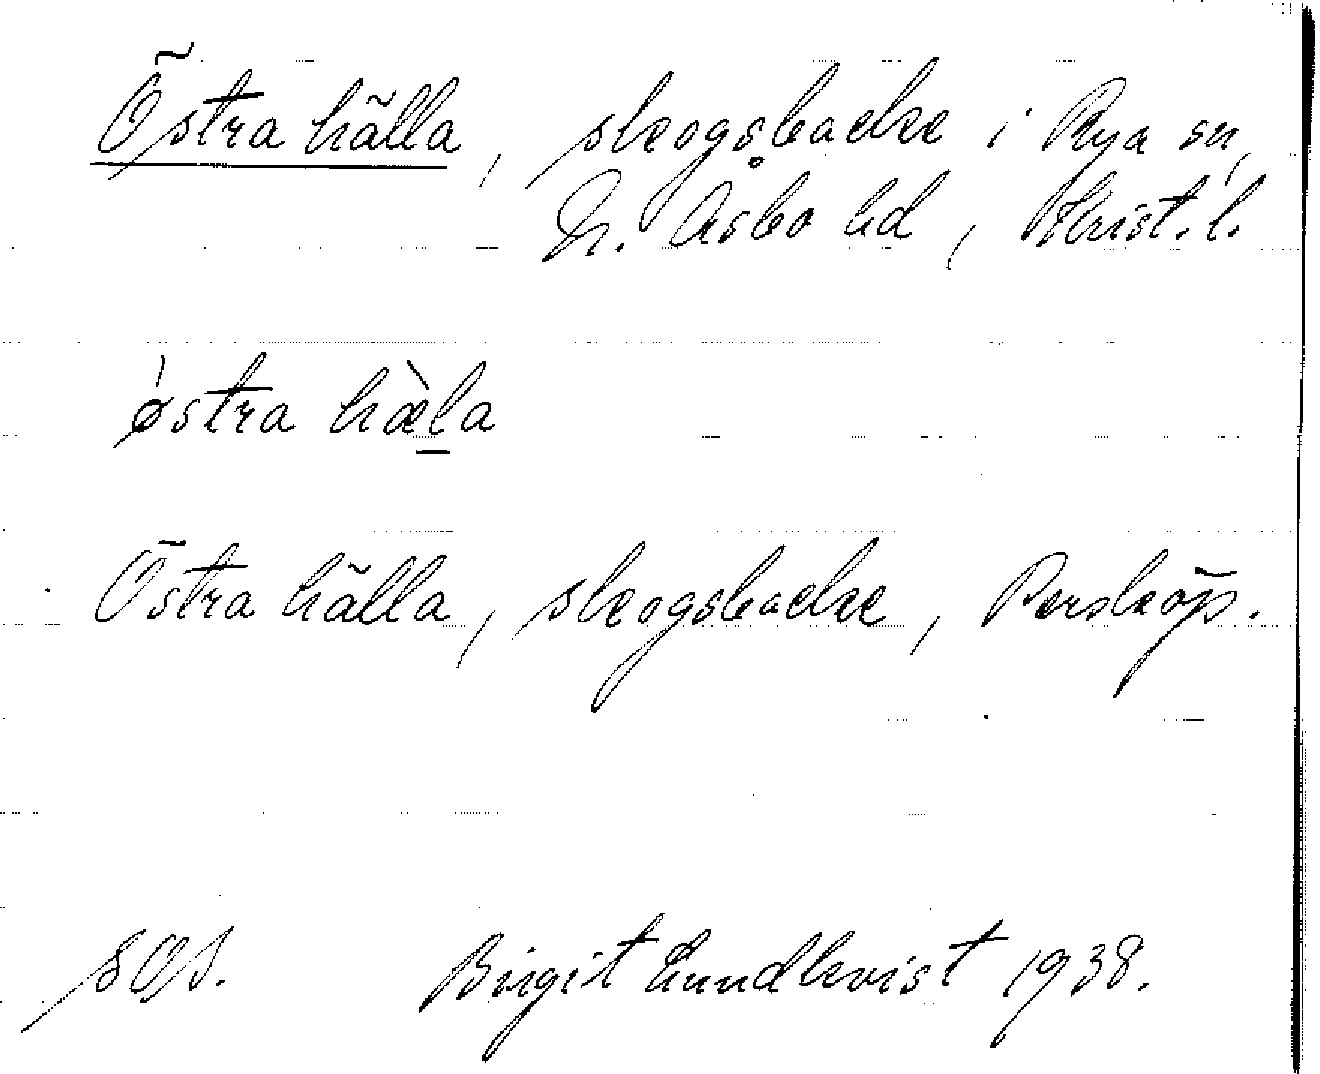 Östra hälla, skogsbacke i Rya sn,
N. Åsbo hd, Krist. l.
østra hæ̀la
Östra hälla, skogsbacke, Persköp.
SOS. Birgit Lundkvist 1938.